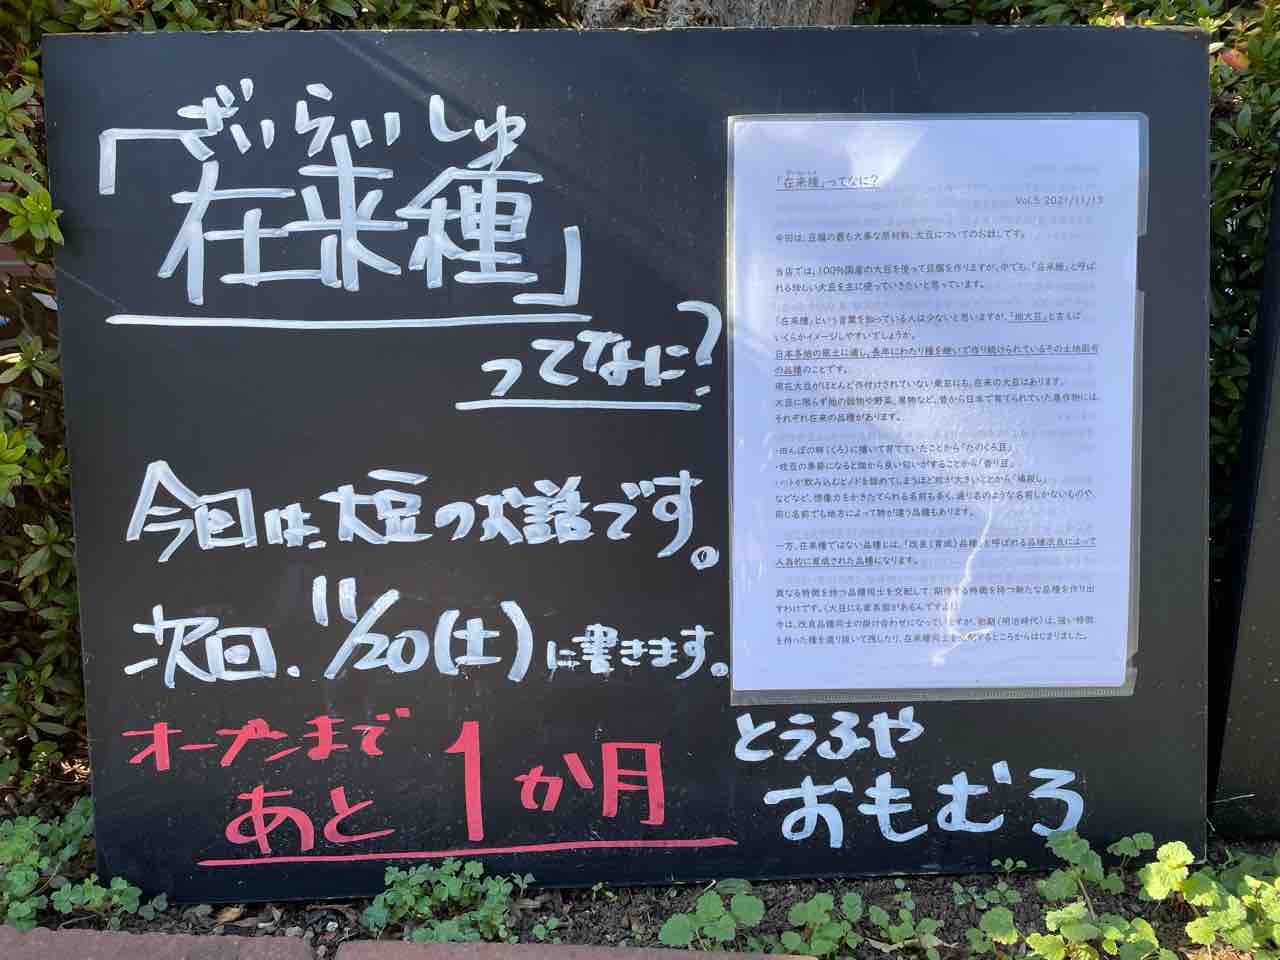 ざいらいしゅ
「在来種」
ってなに?
今回は、大豆のお話です。
次回、11/20(土)に書きます。
オープンまで
あと1か月
「在来種」ってなに?
Vol.5 2021/11/13
今回は、豆腐の最も大事な原材料、大豆についてのお話しです。
当店では、100%国産の大豆を使って豆腐を作りますが、中でも、「在来種」と呼ば
れる珍しい大豆を主に使っていきたいと思っています。
「在来種」という言葉を知っている人は少ないと思いますが、「地大豆」と言えば
いくらかイメージしやすいでしょうか。
日本各地の風土に適し、長年にわたり種を継いで作り続けられているその土地固有
の品種のことです。
現在大豆がほとんど作付けされていない東京にも、在来の大豆はあります。
大豆に限らず他の穀物や野菜、果物など、昔から日本で育てられていた農作物には、
それぞれ在来の品種があります。
・田んぼの畔(くろ)に播いて育てていたことから「たのくろ豆」
・枝豆の季節になると畑から良い匂いがすることから「香り豆」
・ハトが飲み込むとノドを詰めてしまうほど粒が大きいことから「鳩殺し」
などなど、想像力をかきたてられる名前も多く、通り名のような名前しかないものや、
同じ名前でも地方によって特が違う品種もあります。
一方、在来種ではない品種とは、「改良(育成)品種」と呼ばれる品種改良によって
人為的に育成された品種になります。
異なる特徴を持つ品種同士を交配して、期待する特徴を持つ新たな品種を作り出
すわけです。(大豆にも家系図があるんですよ!)
今は、改良品種同士の掛け合わせになっていますが、初期(明治時代)は、強い特徴
を持った種を選り抜いて残したり、在来種同士を交配するところからはじまりました。
とうふや
おもむろ